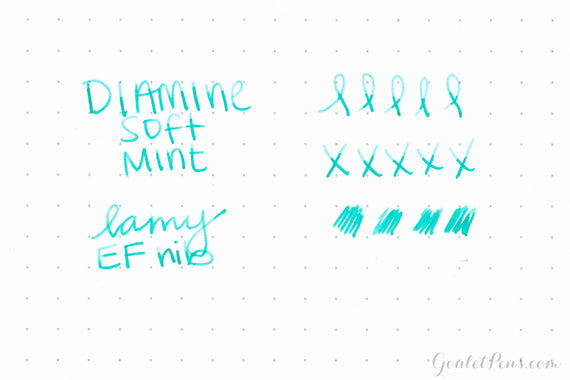 DIAMINE
SOFT
MINT
lamy
EF nib
xxxxx
GouletPens.com